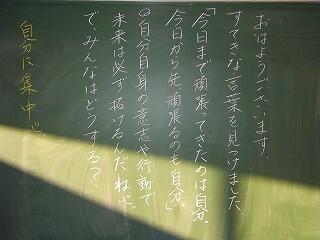 おはようございます。
すてきな言葉を見つけました。
「今日まで頑張ってきたのは自分。
今日から先、頑張るのも自分」
自分自身の意志や行動で
未来は必ず拓けるんだね。
で、みんなはどうする？
自分に集中